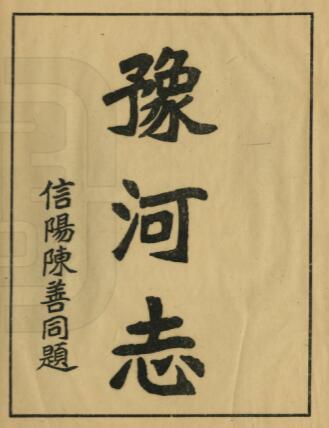 豫河志
信陽陳善同題